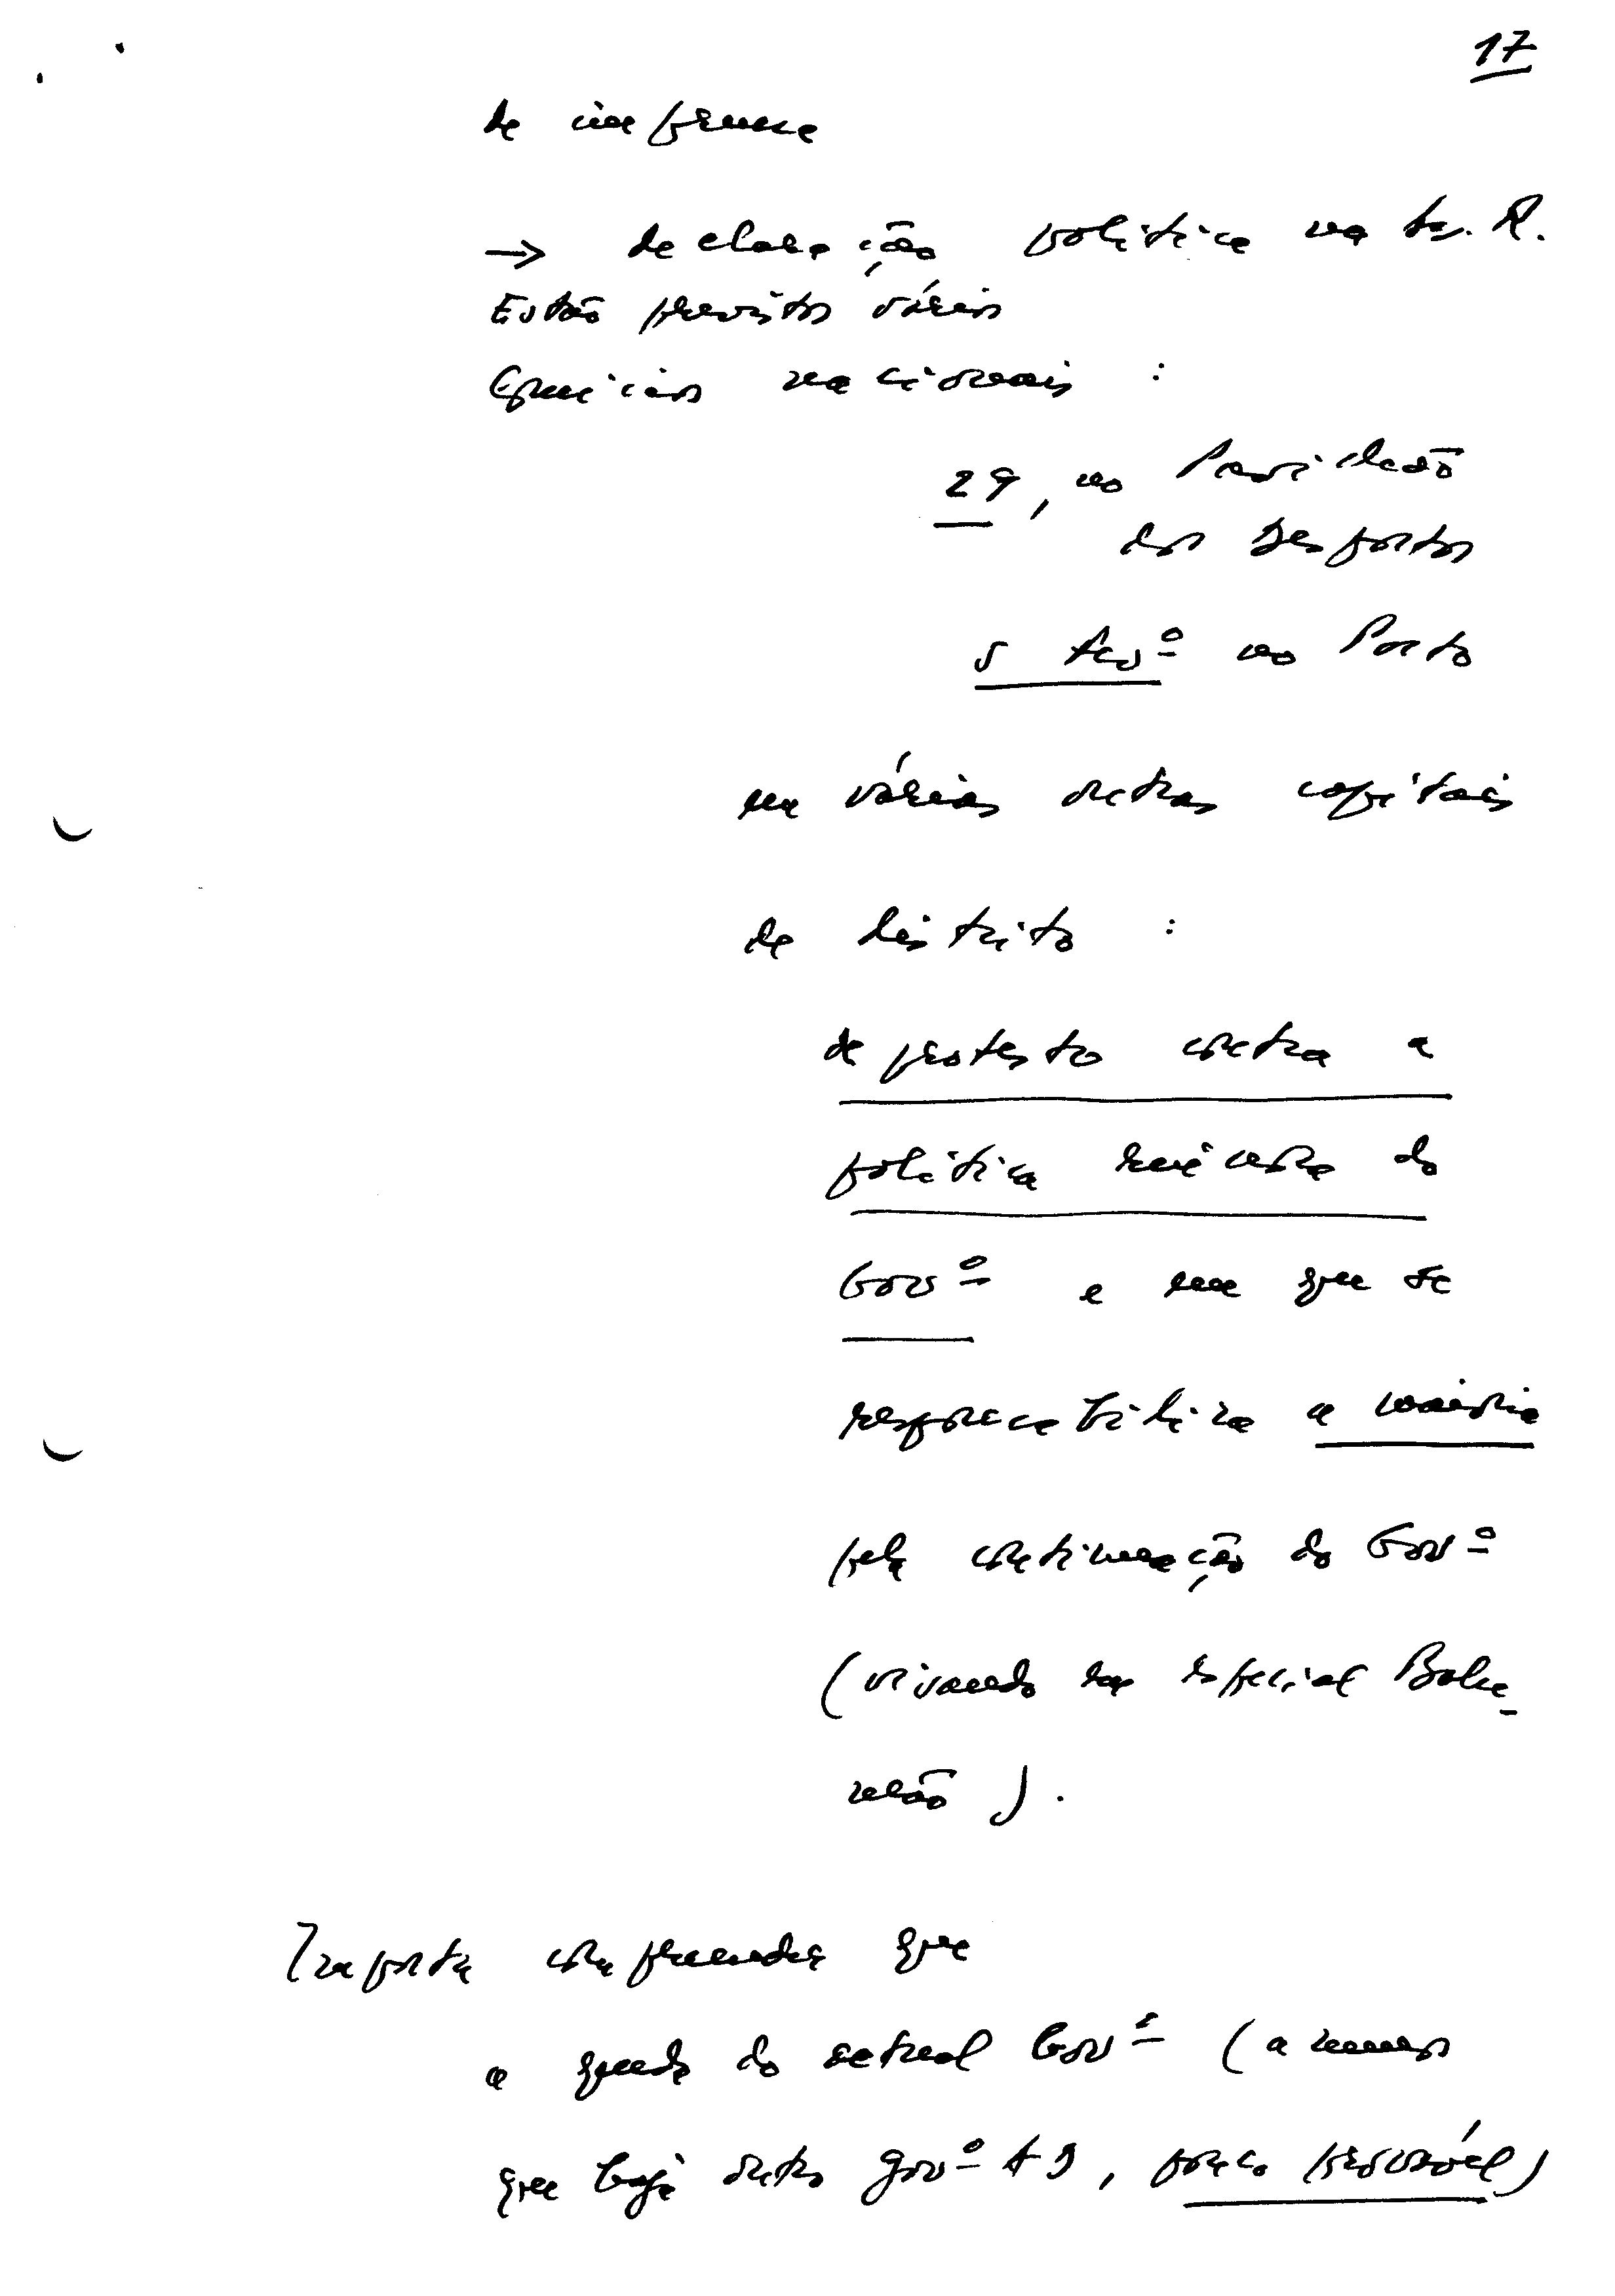 17
de imprensa
→ declaração política na As. R.
Estão previstos vários
Comícios nacionais :
29, no Pavilhão
dos Desportos
5 Fevº no Porto
em várias outras capitais
de distrito :
de protesto contra a
política do
Govº e em que se
responsabiliza a maioria
pela continuação do Govº
(visando em especial Balse_
mão).
Importa compreender que
a queda do actual Govº (a menos
que haja outro govº AD, pouco provável)